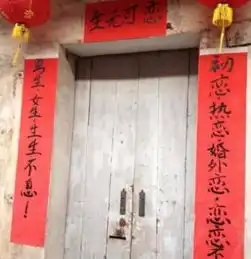 生无可恋
初恋热恋婚外恋,恋恋不
男生女生生生不息!